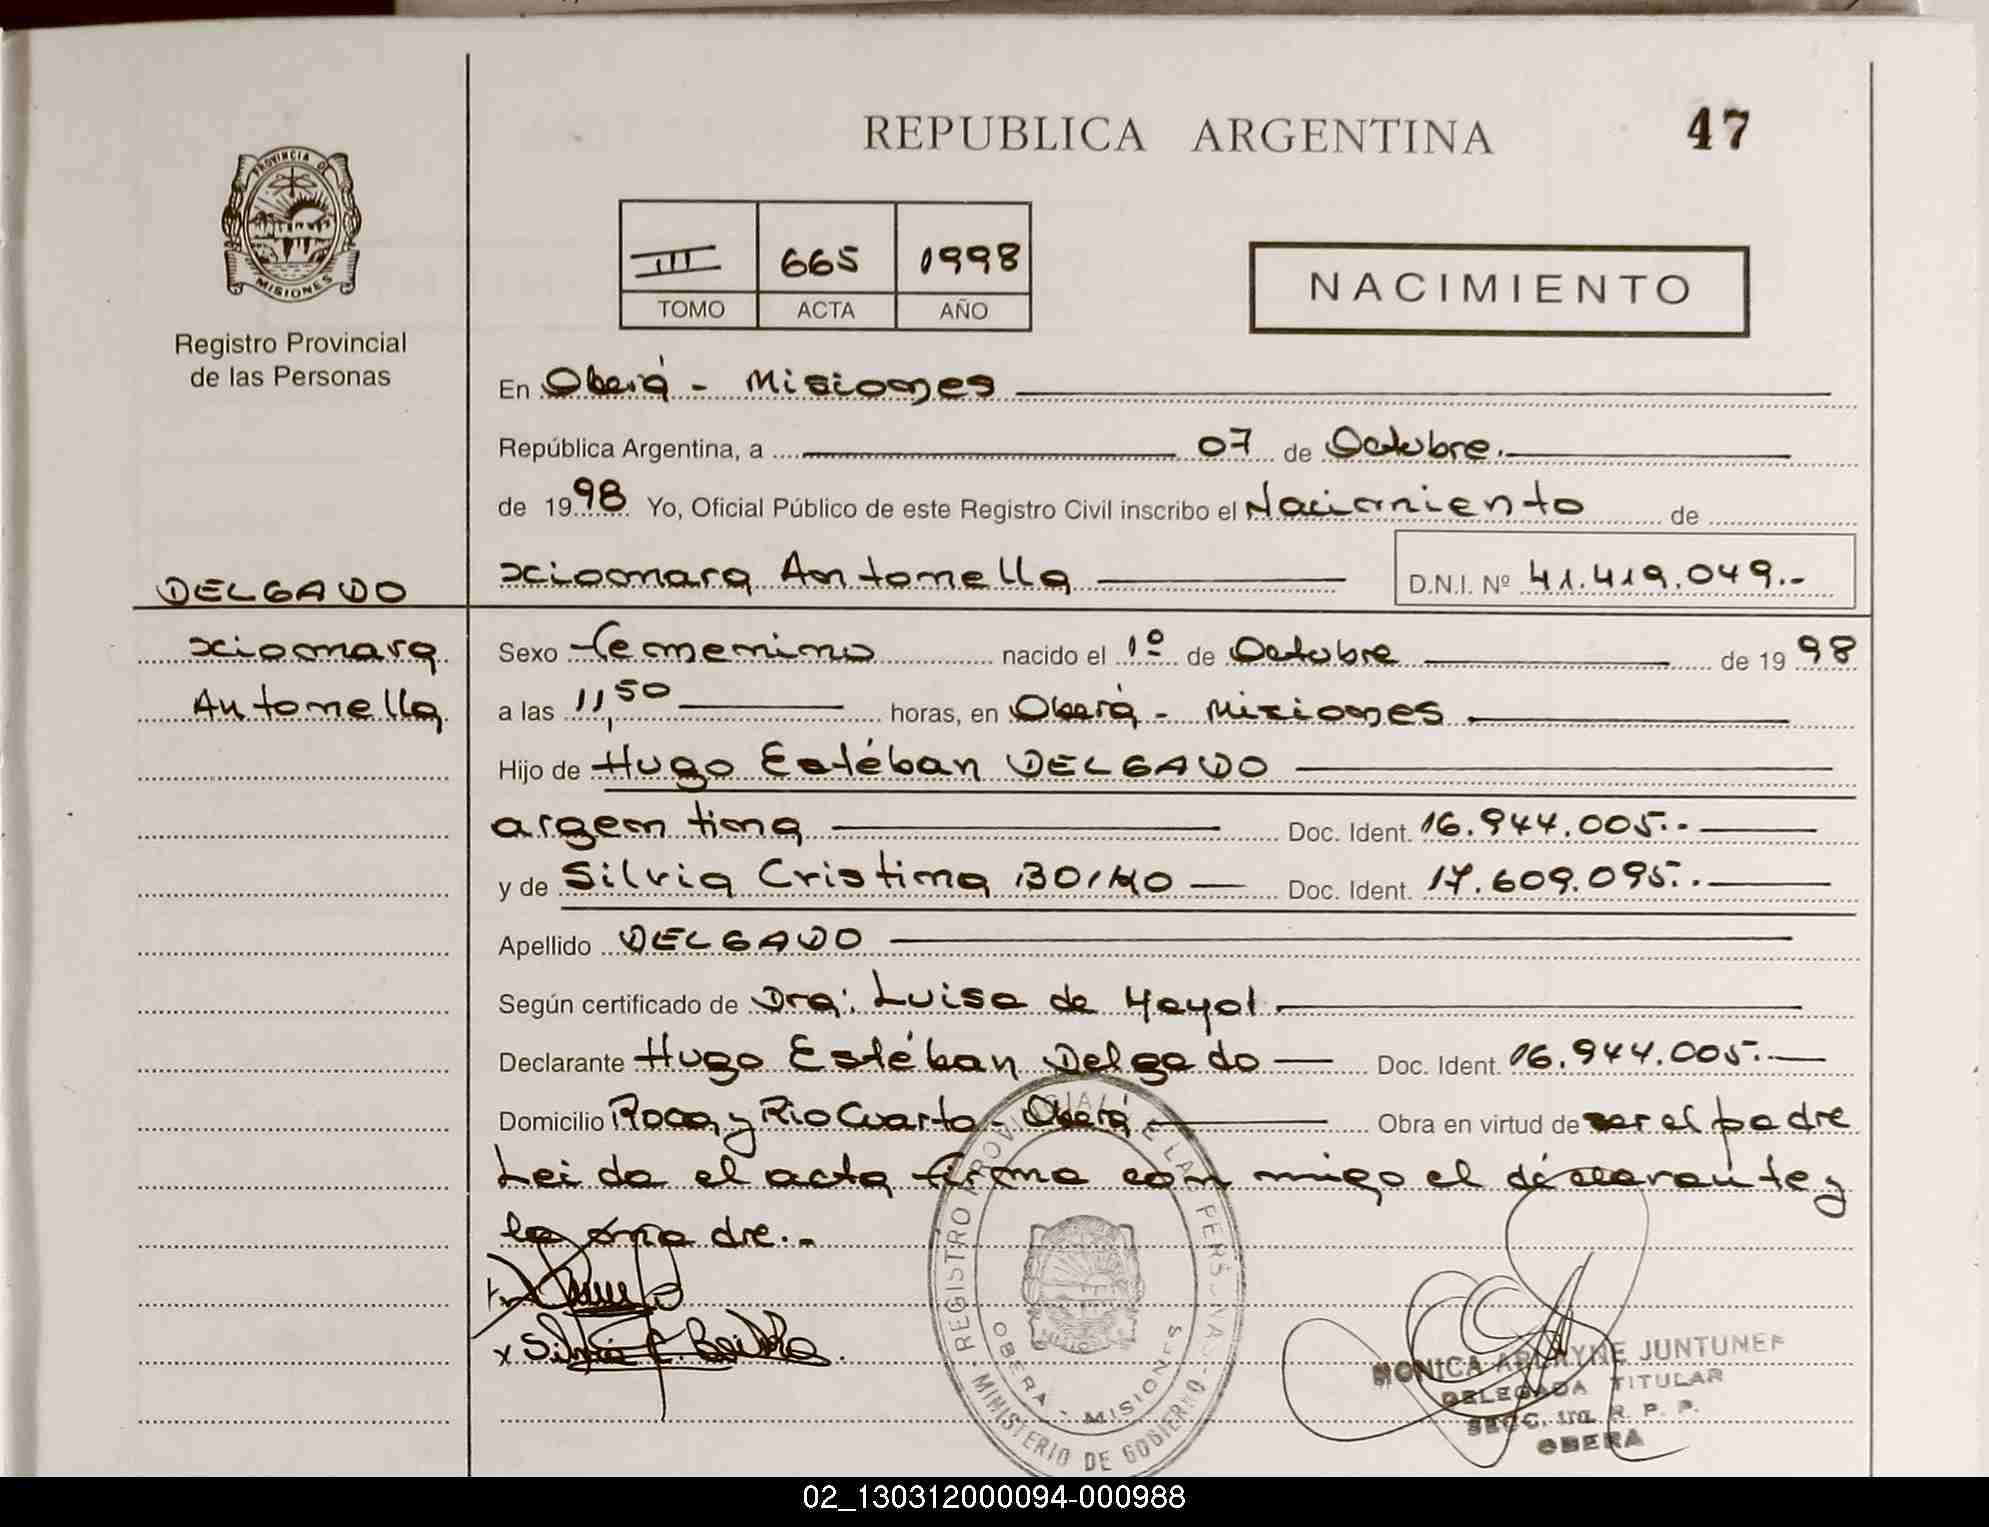 REPUBLICA ARGENTINA
47
PROVINCIA DE
MISIONES
Registro Provincial
de las Personas
III 665 1998
TOMO ACTA AÑO
NACIMIENTO
En Oberá - Misiones
República Argentina, a 07 de Octubre.
de 1998 Yo, Oficial Público de este Registro Civil inscribo el Nacimiento de
Xiomara Antonella D.N.I. Nº 41.419.049.-
DELGADO
Xiomara
Antonella
Sexo femenino nacido el 1º de Octubre de 1998
a las 11,50 horas, en Oberá - Misiones
Hijo de Hugo Estéban DELGADO
argentina Doc. Ident. 16.944.005.-
y de Silvia Cristina Doc. Ident. 17.609.095.-
Apellido DELGADO
Según certificado de Dra: Luisa de Mayol
Declarante Hugo Estéban Delgado Doc. Ident. 16.944.005.-
Domicilio Roca y Rio Cuarto - Oberá Obra en virtud de ser el padre
Leida el acta firma con migo el declarante y
la madre.-
REGISTRO PROVINCIAL DE LAS PERSONAS
MINISTERIO DE GOBIERNO
OBERA - MISIONES
MONICA JUNTUNEN
DELEGADA TITULAR
SECC. 1ra. R. P. P.
OBERA
02_130312000094-000988